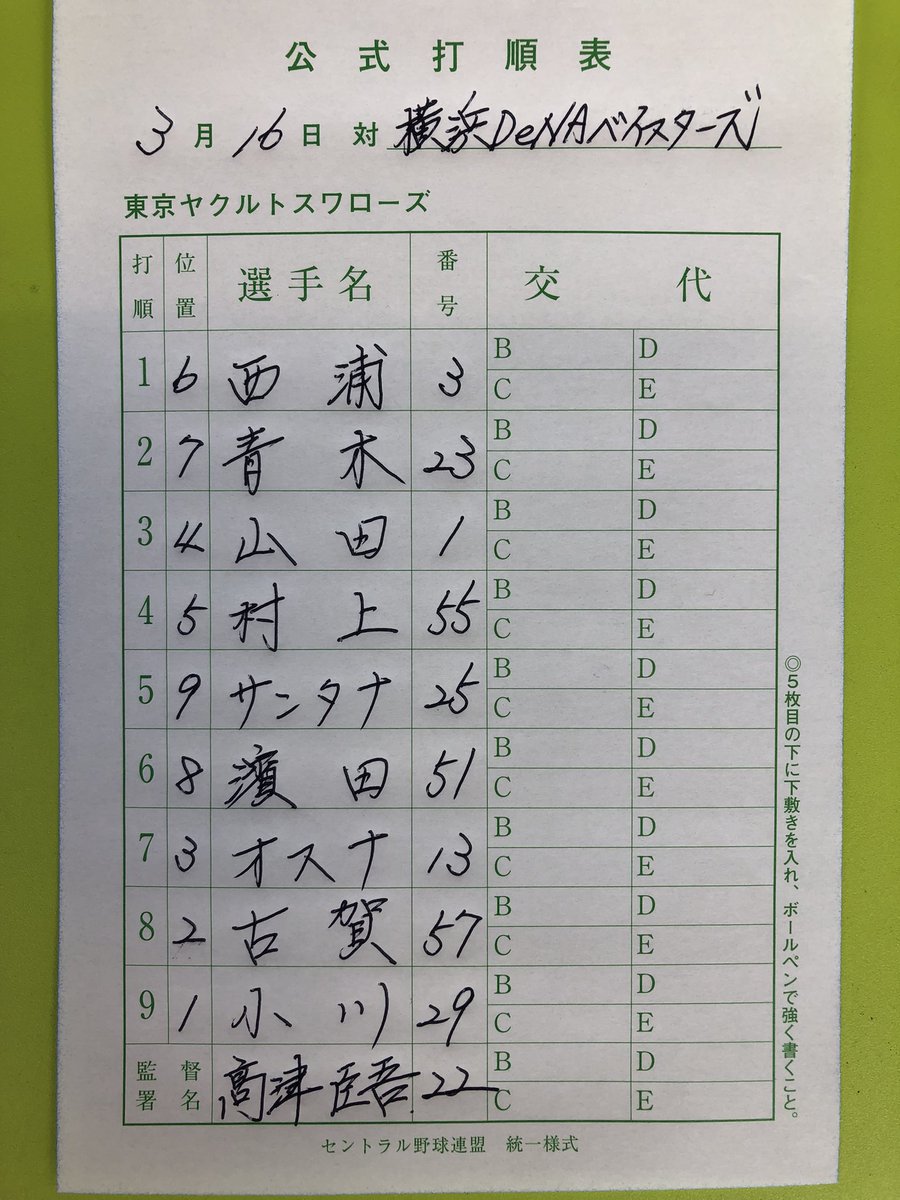 公式打順表
3月16日 対 横浜DeNAベイスターズ
東京ヤクルトスワローズ
打順 位置 選手名 番号 交代
1 6 西浦 3 B D C E
2 7 青木 23 B D C E
3 4 山田 1 B D C E
4 5 村上 55 B D C E
5 9 サンタナ 25 B D C E
6 8 濱田 51 B D C E
7 3 オスナ 13 B D C E
8 2 古賀 57 B D C E
9 1 小川 29 B D C E
監督署名 高津臣吾 22 B D C E
セントラル野球連盟 統一様式
◎5枚目の下に下敷きを入れ、ボールペンで強く書くこと。